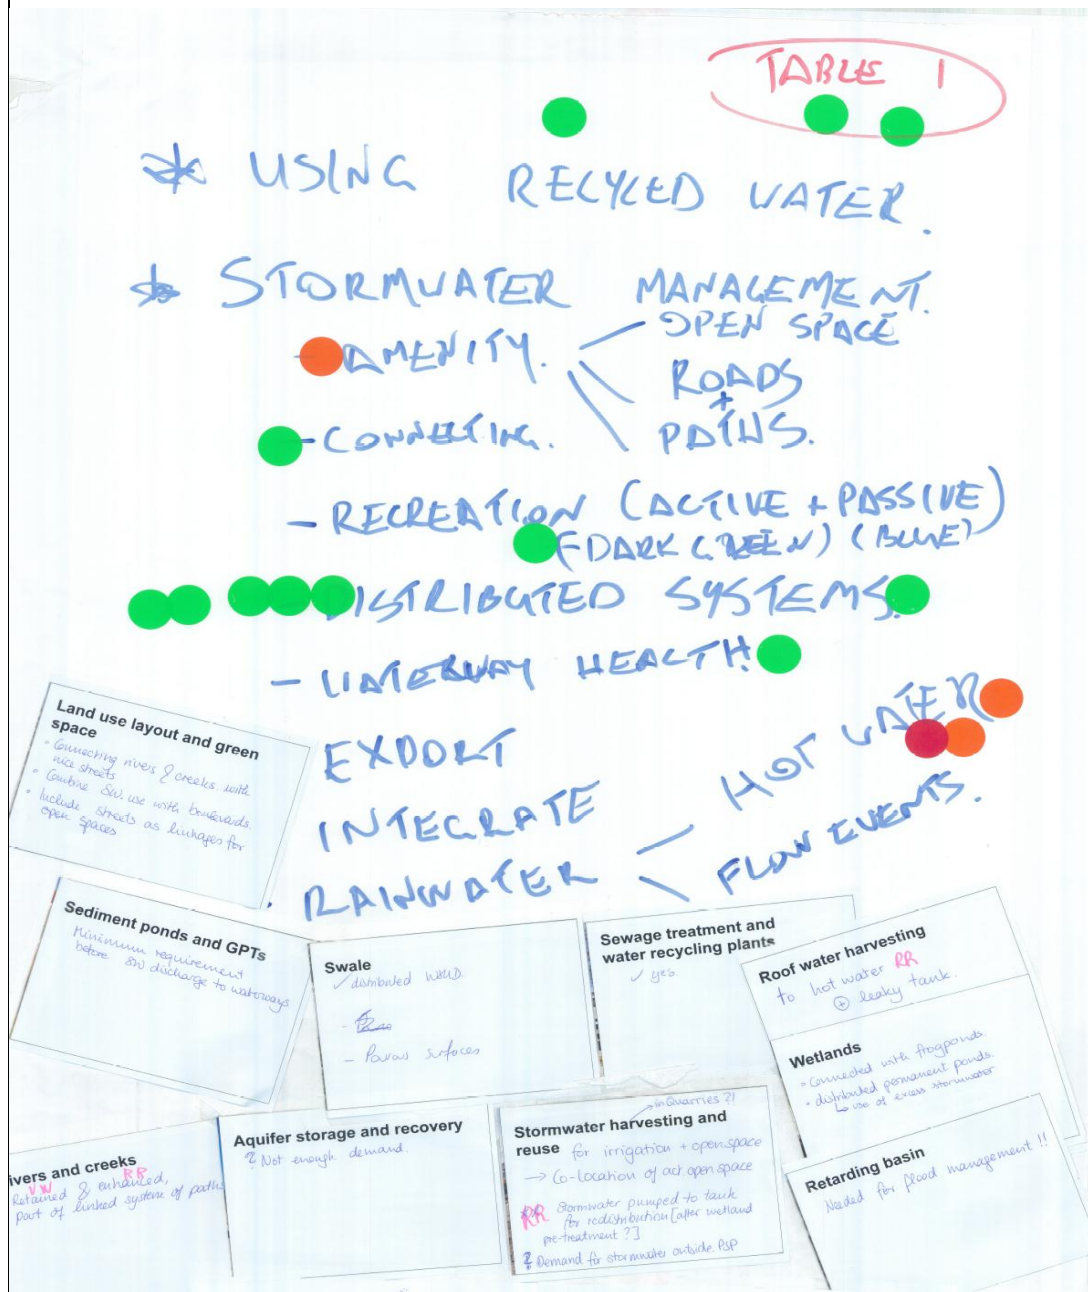 TABLE 1
* USING RECYCLED WATER.
* STORMWATER MANAGEMENT.
- AMENITY.
OPEN SPACE
ROADS
+
PATHS.
- CONNECTING.
- RECREATION (ACTIVE + PASSIVE)
(DARK GREEN) (BLUE)
- DISTRIBUTED SYSTEMS.
- WATERWAY HEALTH
EXPORT
INTEGRATE
RAINWATER
HOT WATER
FLOW EVENTS.
Land use layout and green
space
• Connecting rivers & creeks with
nice streets
• Combine SW. use with boulevards.
• Include streets as linkages for
open spaces
Sediment ponds and GPTs
Minimum requirement
before SW discharge to waterways
Swale
✓ distributed WSUD
- Porous surfaces
Sewage treatment and
water recycling plants
✓ yes
Roof water harvesting
to hot water RR
⊕ leaky tank.
Wetlands
• Connected with frogponds.
• distributed permanent ponds.
↳ use of excess stormwater
ivers and creeks
RR
VW
Retained & enhanced,
part of linked system of paths
Aquifer storage and recovery
? Not enough demand.
→ in Quarries ?!
Stormwater harvesting and
reuse for irrigation + open space
→ Co-location of act open space
RR Stormwater pumped to tank
for redistribution [after wetland
pre-treatment ?]
? Demand for stormwater outside. PSP
Retarding basin
Needed for flood management !!